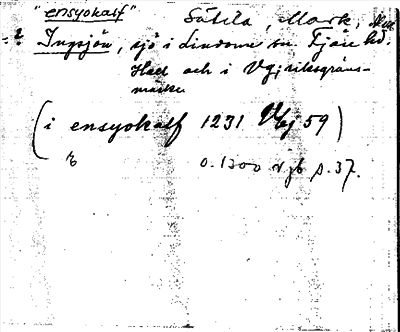 "ensyokalf" Sätila, Mark,
= ? Ingsjön, sjö i Lindome sn. Fjäre hd.
Hall och i Vg; riksgräns-
märke
(i ensyokalf 1231 Vgj 59)
o. 1300 vjb p. 37.